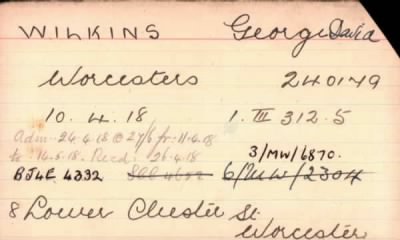 WILKINS George David
Worcesters 240179
10.4.18 1. III 312.5
Adm. 24.4.18 27/6 fr. 11.4.18
to 14.5.18. Recd. 26.4.18 3/MW/6870.
BJ4E 4332 6/MW/2304
8 Lower Chester St.
Worcester